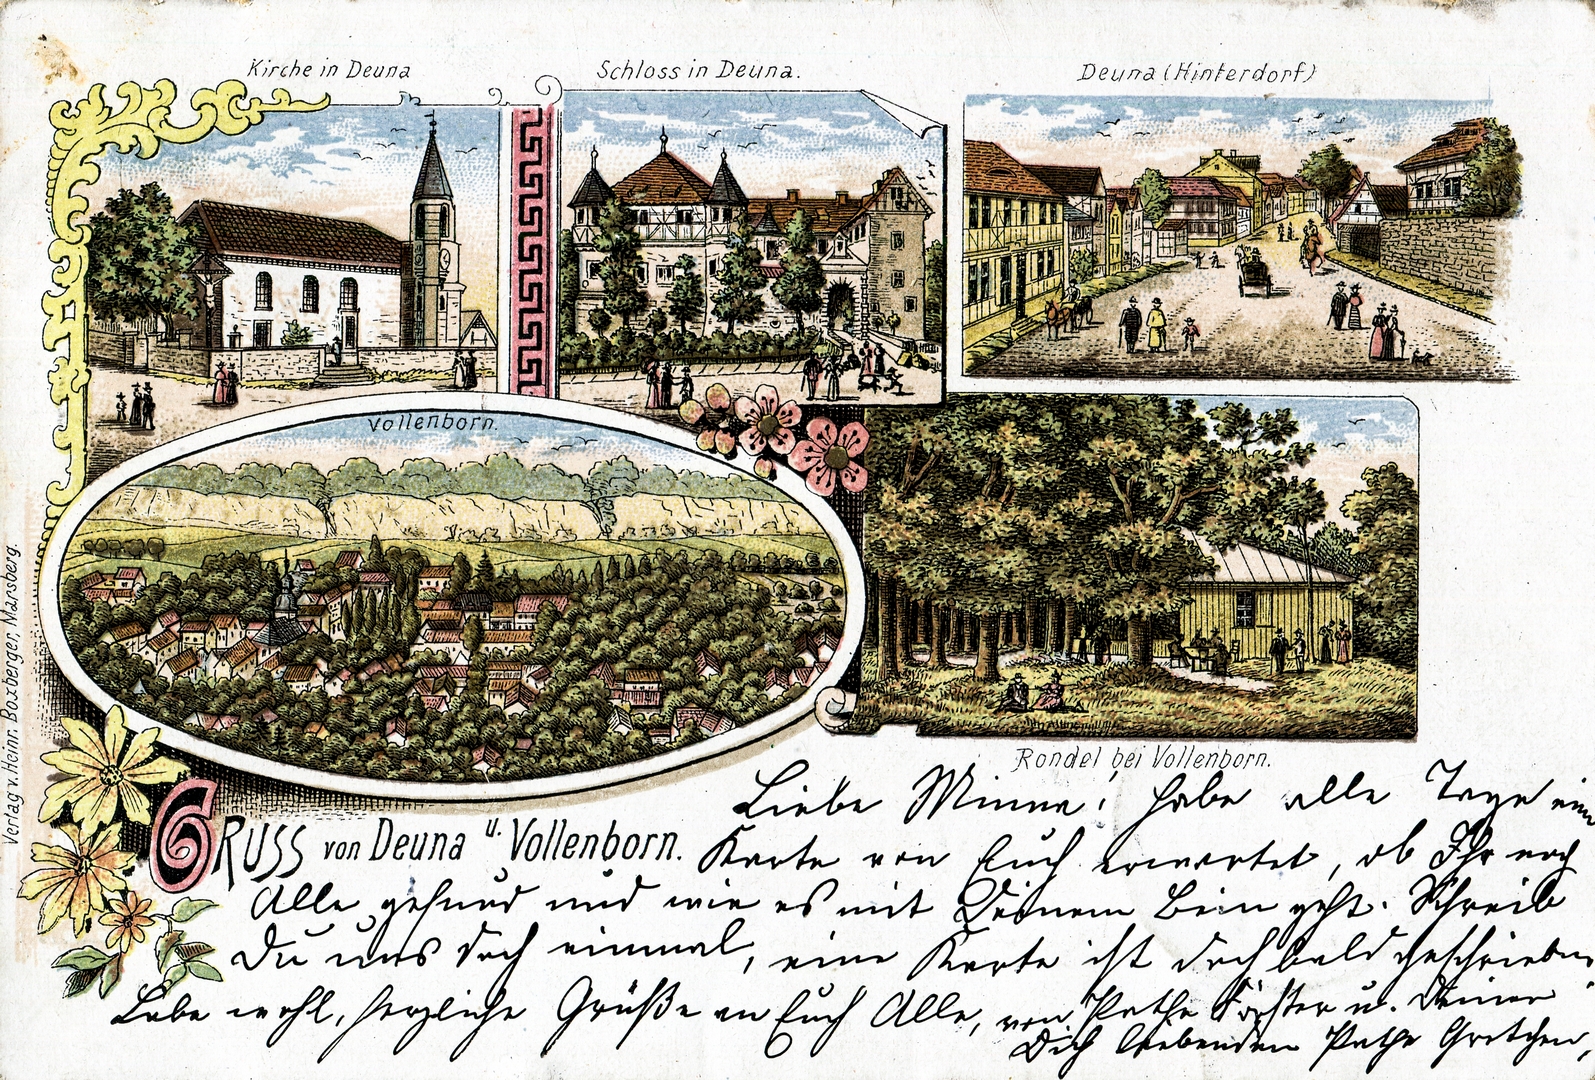 Kirche in Deuna
Schloss in Deuna.
Deuna (Hinterdorf)
Vollenborn.
Rondel bei Vollenborn.
Verlag v. Heinr. Boxberger, Marsberg.
GRUSS von Deuna u. Vollenborn.
Liebe Minna! habe alle Tage eine
Karte von Euch erwartet, ob Ihr noch
Alle gesund und wie es mit Deinem Bein geht. Schreib
Du uns doch einmal, eine Karte ist doch bald geschrieben.
Lebe wohl, herzliche Grüße an Euch Alle, von Pathe Förster u. Deiner
Dich liebenden Pathe Gretchen,